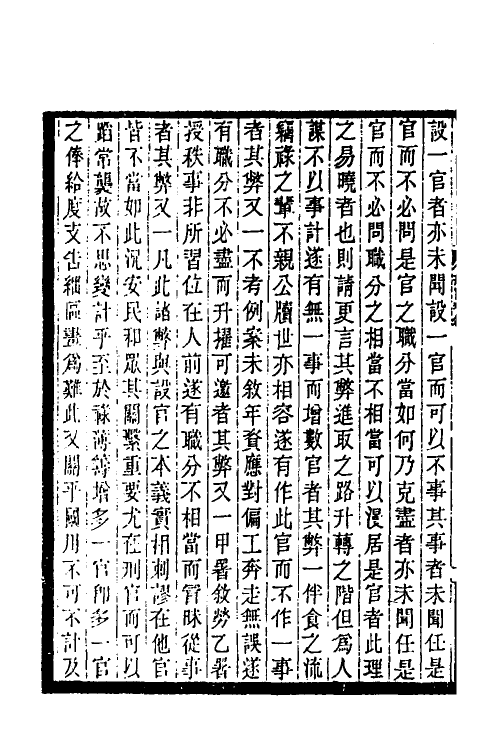 設一官者亦未聞設一官而可以不事其事者未聞任是
官而不必問是官之職分當如何乃克盡者亦未聞任是
官而不必問職分之相當不相當可以漫居是官者此理
之易曉者也則請更言其弊進取之路升轉之階但為人
謀不以事計遂有無一事而增數官者其弊一伴食之流
竊祿之輩不親公牘世亦相容遂有作此官而不作一事
者其弊又一不考例案未敘年資應對偏工奔走無誤遂
有職分不必盡而升擢可邀者其弊又一甲署敘勞乙署
授秩事非所習位在人前遂有職分不相當而冒昧從事
者其弊又一凡此諸弊與設官之本義實相刺謬在他官
皆不當如此況安民和眾其關繫重要尤在刑官而可以
蹈常襲故不思變計乎至於祿薄籌增多一官即多一官
之俸給度支告繼區畫為難此又關乎國用不可不計及